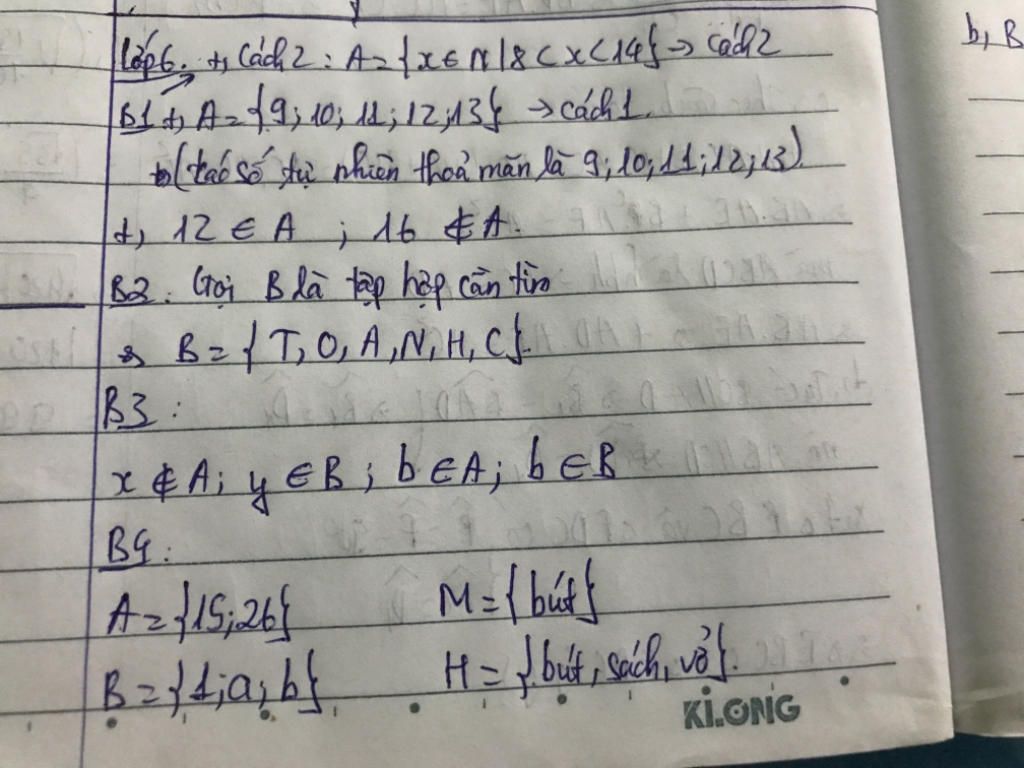 Lớp 6. +, Cách 2 : A = {x ∈ N | 8 < x < 14} → Cách 2
B1 +, A = {9; 10; 11; 12; 13} → cách 1.
(các số tự nhiên thoả mãn là 9; 10; 11; 12; 13).
+, 12 ∈ A ; 16 ∉ A.
B2 : Gọi B là tập hợp cần tìm
B = { T, O, A, N, H, C }.
B3 :
x ∉ A ; y ∈ B ; b ∈ A ; b ∈ B
B4 :
A = {15; 26} M = {bút}
B = {1; a; b} H = {bút, sách, vở}.
KLONG
b, B